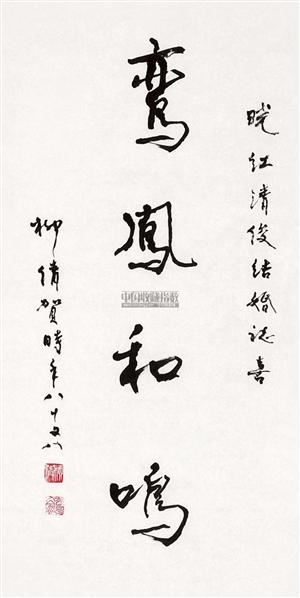 晓红清俊结婚志喜
鸾凤和鸣
柳倩贺时年八十又八
中国收藏指数